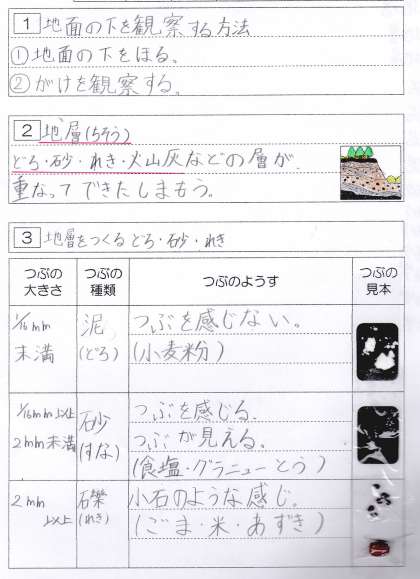 1 地面の下を観察する方法
①地面の下をほる。
②がけを観察する。
2 地層(ちそう)
どろ・砂・れき・火山灰などの層が、
重なってできたしまもう。
3 地層をつくる どろ・砂・れき
つぶの大きさ つぶの種類 つぶのようす つぶの見本
1/16mm 泥 つぶを感じない。
未満 (どろ) (小麦粉)
1/16mm以上 砂 つぶを感じる。
2mm未満 (すな) つぶが見える。
(食塩・グラニューとう)
2mm 石礫 小石のような感じ。
以上 (れき) (ごま・米・あずき)